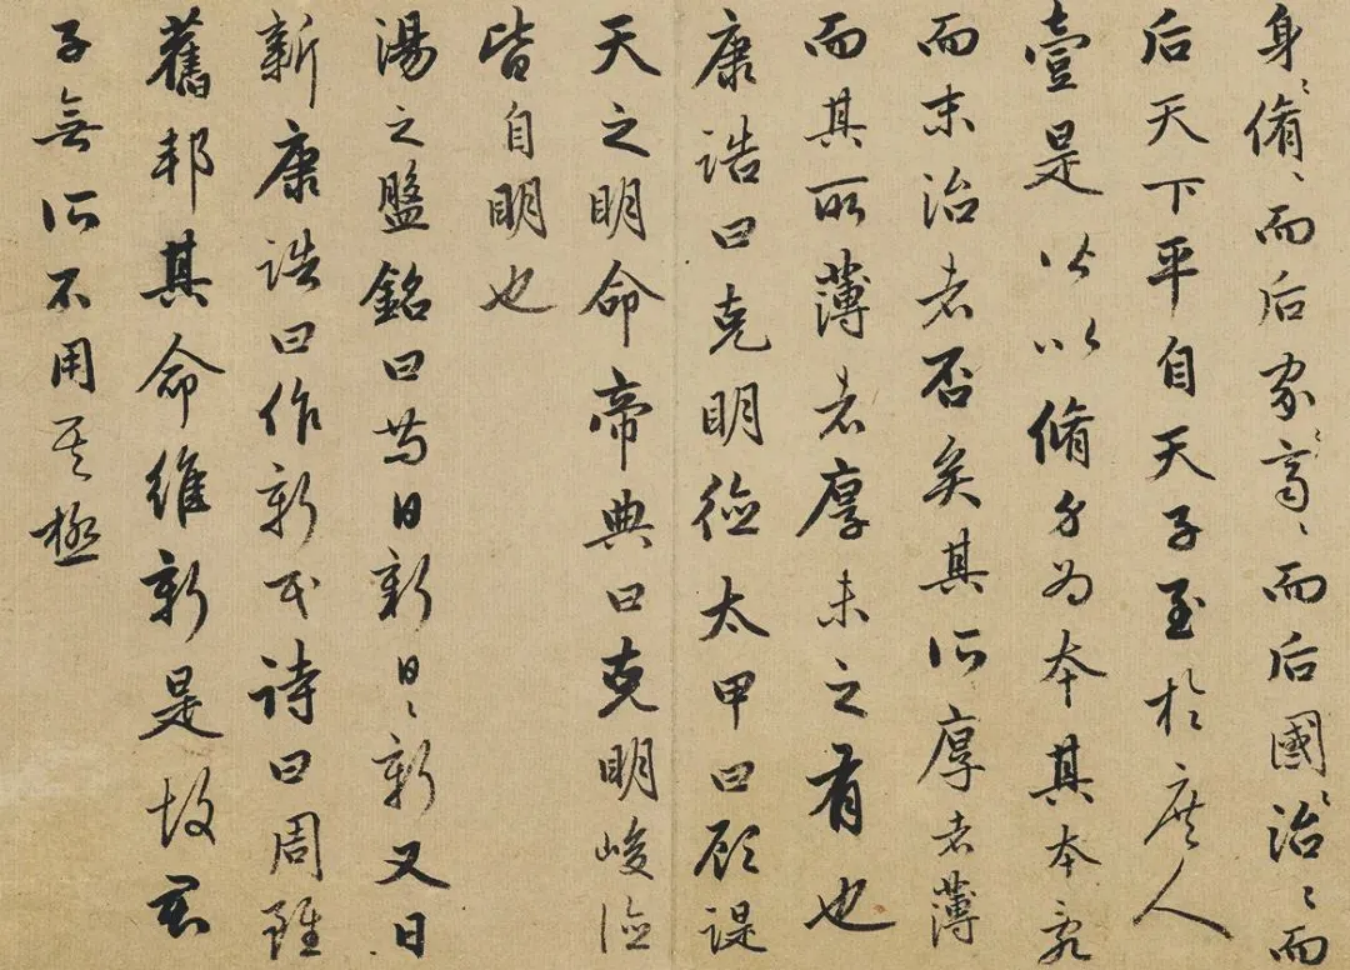 身〻脩〻而后家齊〻〻而后國治〻〻而
后天下平自天子至於庶人
壹是以以脩身為本其本亂
而末治者否矣其所厚者薄
而其所薄者厚未之有也
康誥曰克明德太甲曰顧諟
天之明命帝典曰克明峻德
皆自明也
湯之盤銘曰苟日新日〻新又日
新康誥曰作新民詩曰周雖
舊邦其命維新是故君
子無所不用其極